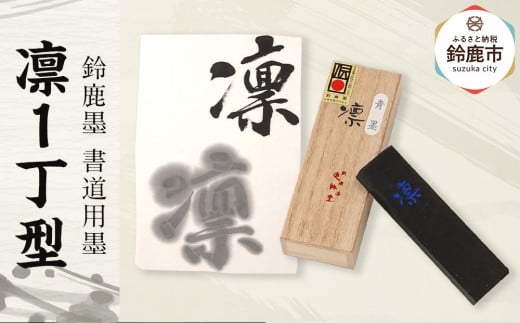 凛1丁型
鈴鹿墨 書道用墨
凛
凛
青墨
凛
凛
ふるさと納税
鈴鹿市
suzuka city